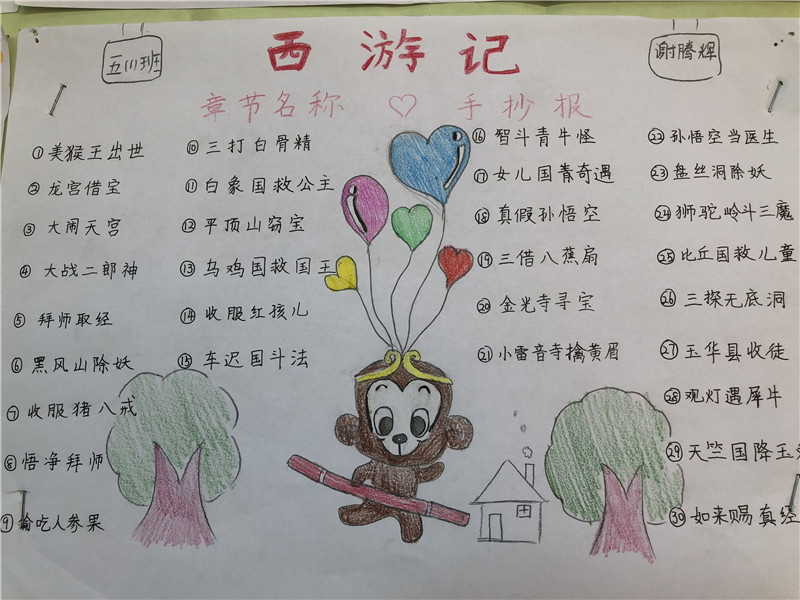 五(1)班
西游记
谢腾辉
章节名称 手抄报
①美猴王出世
②龙宫借宝
③大闹天宫
④大战二郎神
⑤拜师取经
⑥黑风山除妖
⑦收服猪八戒
⑧悟净拜师
⑨偷吃人参果
⑩三打白骨精
⑪白象国救公主
⑫平顶山窃宝
⑬乌鸡国救国王
⑭收服红孩儿
⑮车迟国斗法
⑯智斗青牛怪
⑰女儿国奇遇
⑱真假孙悟空
⑲三借八蕉扇
⑳金光寺寻宝
㉑小雷音寺擒黄眉
㉒孙悟空当医生
㉓盘丝洞除妖
㉔狮驼岭斗三魔
㉕比丘国救儿童
㉖三探无底洞
㉗玉华县收徒
㉘观灯遇犀牛
㉙天竺国降玉
㉚如来赐真经